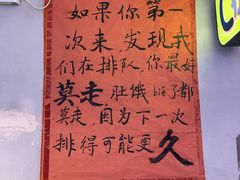 如果你第一
次来，发现我
们在排队，你最好
莫走 肚饿bie了都
莫走，因为下一次
排得可能更久